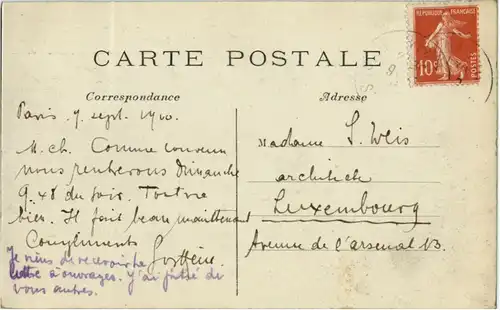 CARTE POSTALE
REPUBLIQUE FRANÇAISE
10c
POSTES
Correspondance
Adresse
Paris, 7. sept. 1910.
M. ch. Comme convenu
nous rentrerons Dimanche
9.48 du soir. Tout va
bien. Il fait beau maintenant
Compliments
Je viens de recevoir la
boîte à ouvrages. J'ai pensé de
vous autres.
Madame S. Weis
architecte
Luxembourg
Avenue de l'arsenal 13.